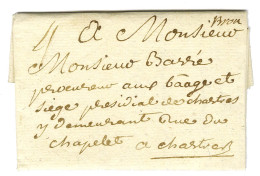 Brou
4 A Monsieur
Monsieur Barré
procureur aux baage et
siege presidial de chartres
y demeurant Rue du
chapelet a chartres